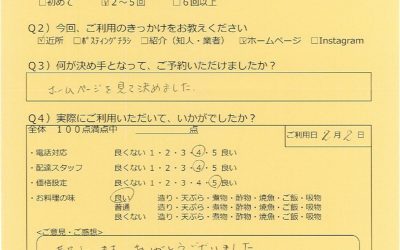 □初めて ☑2～5回 □6回以上
Q2）今回、ご利用のきっかけをお教えください
☑近所 □ﾎﾟｽﾃｨﾝｸﾞﾁﾗｼ □紹介（知人・業者） ☑ホームページ □Instagram
Q3）何が決め手となって、ご予約いただけましたか？
ホームページを見て決めました。
Q4）実際にご利用いただいて、いかがでしたか？
全体 100点満点中 ＿＿＿＿点
ご利用日 2月2日
・電話対応 良くない 1・2・3・4・5 良い
・配達スタッフ 良くない 1・2・3・4・5 良い
・価格設定 良くない 1・2・3・4・5 良い
・お料理の味 良い 造り・天ぷら・煮物・酢物・焼魚・ご飯・吸物
普通 造り・天ぷら・煮物・酢物・焼魚・ご飯・吸物
良くない 造り・天ぷら・煮物・酢物・焼魚・ご飯・吸物
＜ご意見・ご感想＞
ありがとうございました